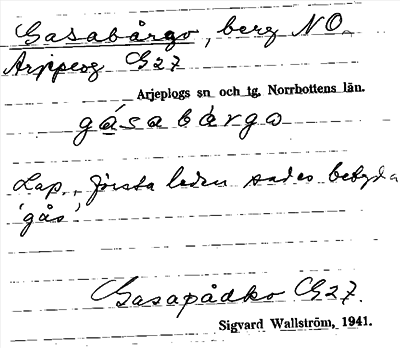 Gasabårgo, berg NO
Arjeplog G27
Arjeplogs sn och tg. Norrbottens län.
gásabárgo
Lap., första leden sades betyda
'gås'
Gasapådko G27.
Sigvard Wallström, 1941.